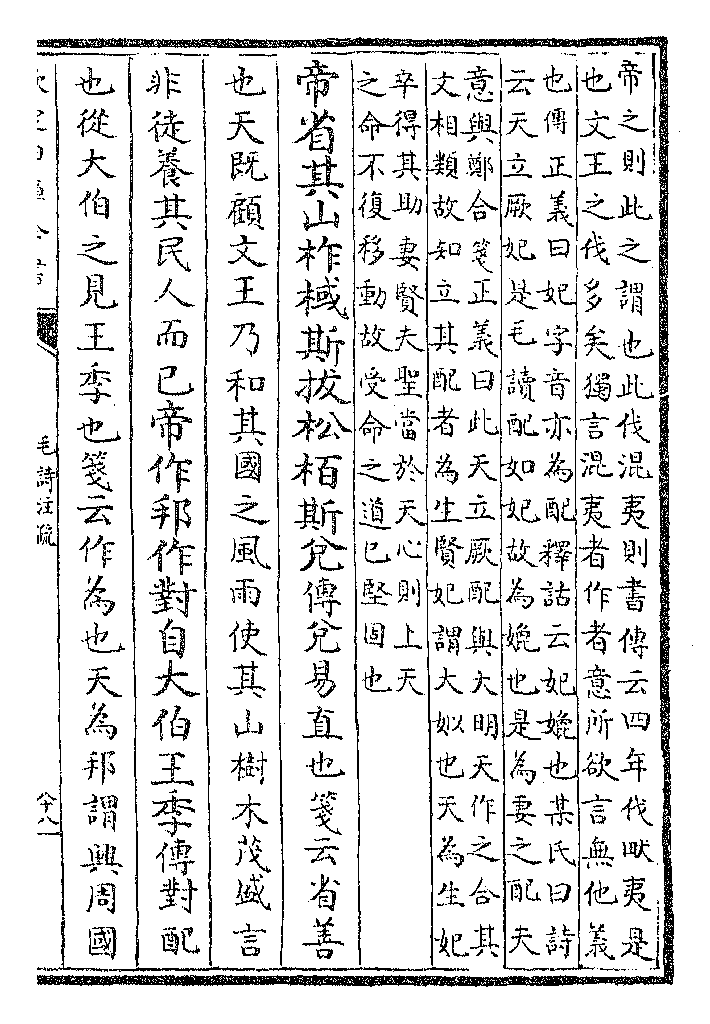 帝之則此之謂也此伐混夷則書傳云四年伐畎夷是
也文王之伐多矣獨言混夷者作者意所欲言無他義
也傳正義曰妃字音亦為配釋詁云妃媲也某氏曰詩
云天立厥妃是毛讀配如妃故為媲也是為妻之配夫
意與鄭合箋正義曰此天立厥配與大明天作之合其
文相類故知立其配者為生賢妃謂大姒也天為生妃
卒得其助妻賢夫聖當於天心則上天
之命不復移動故受命之道已堅固也
帝省其山柞棫斯拔松栢斯兊傳兊易直也箋云省善
也天既顧文王乃和其國之風雨使其山樹木茂盛言
非徒養其民人而已帝作邦作對自大伯王季傳對配
也從大伯之見王季也箋云作為也天為邦謂興周國
毛詩注疏